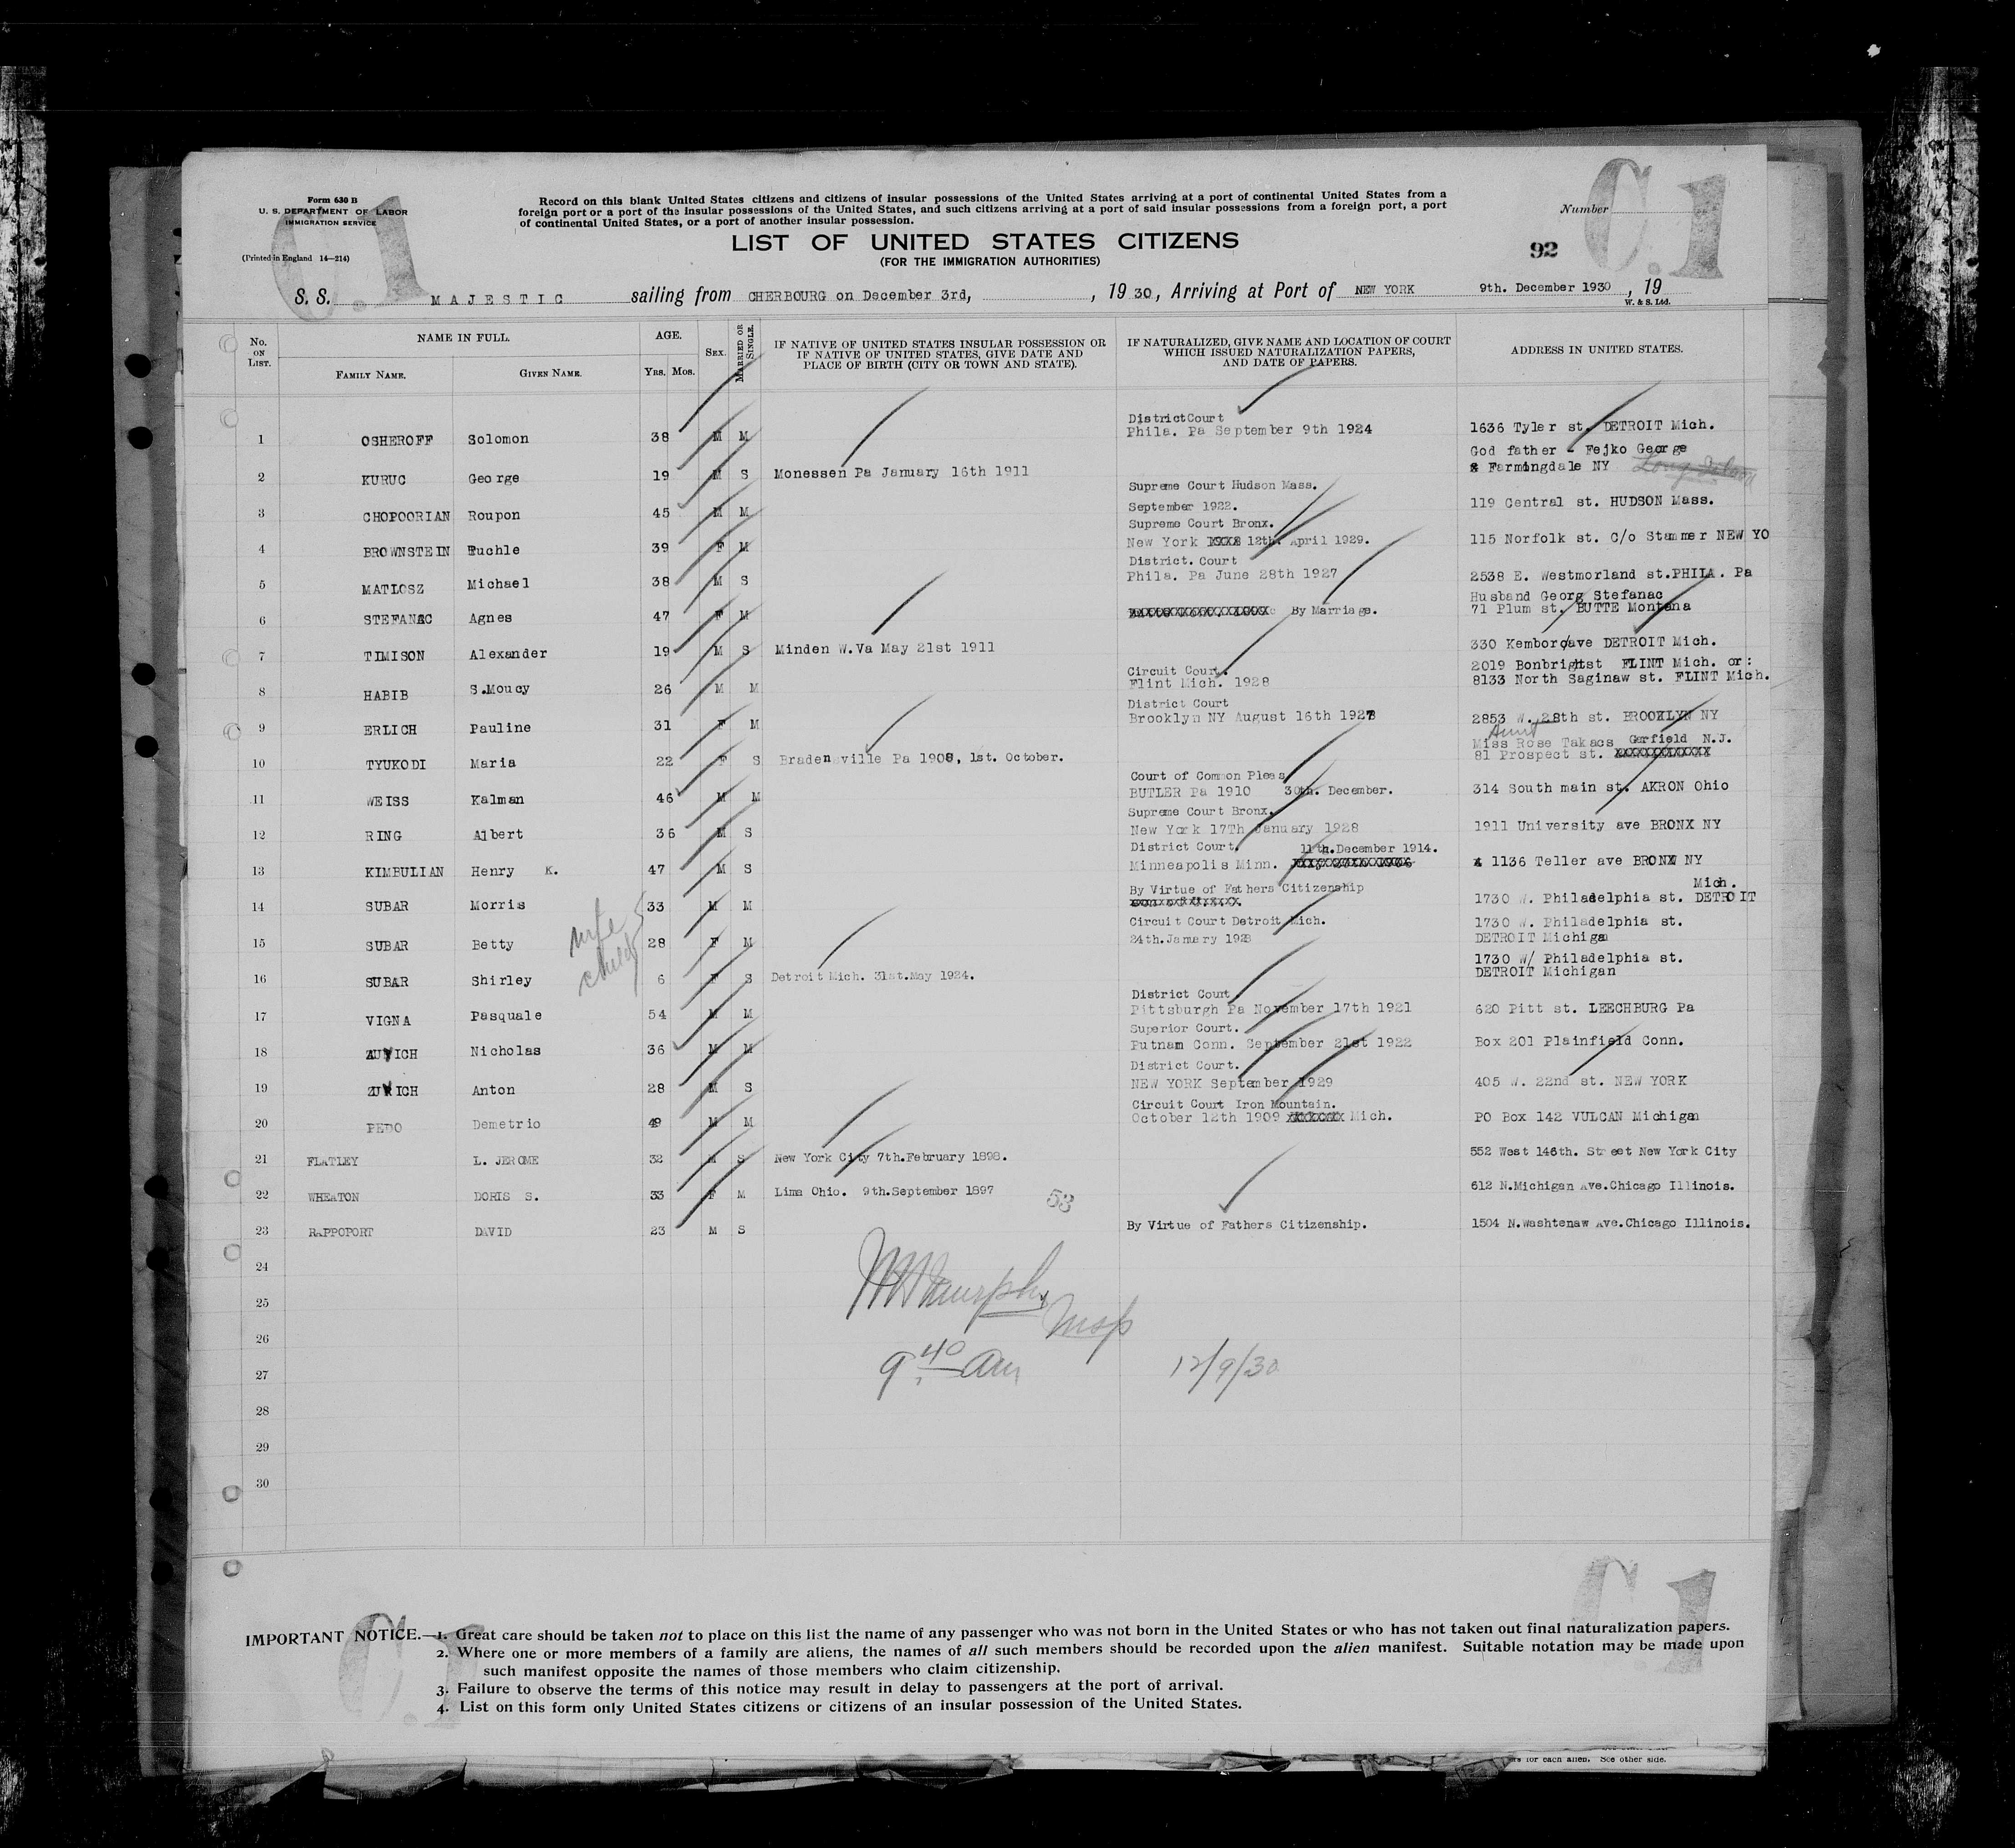 C.1
C.1
Form 630 B
U. S. DEPARTMENT OF LABOR
IMMIGRATION SERVICE
(Printed in England 14—214)
Record on this blank United States citizens and citizens of insular possessions of the United States arriving at a port of continental United States from a
foreign port or a port of the insular possessions of the United States, and such citizens arriving at a port of said insular possessions from a foreign port, a port
of continental United States, or a port of another insular possession.
Number
LIST OF UNITED STATES CITIZENS
(FOR THE IMMIGRATION AUTHORITIES)
92
S. S. MAJESTIC sailing from CHERBOURG on December 3rd, , 19 30, Arriving at Port of NEW YORK 9th. December 1930 , 19
W. & S. Ltd.
No. ON LIST. NAME IN FULL. FAMILY NAME. GIVEN NAME. AGE. Yrs. Mos. SEX. MARRIED OR SINGLE. IF NATIVE OF UNITED STATES INSULAR POSSESSION OR IF NATIVE OF UNITED STATES, GIVE DATE AND PLACE OF BIRTH (CITY OR TOWN AND STATE). IF NATURALIZED, GIVE NAME AND LOCATION OF COURT WHICH ISSUED NATURALIZATION PAPERS, AND DATE OF PAPERS. ADDRESS IN UNITED STATES.
1 OSHEROFF Solomon 38 M M DistrictCourt Phila. Pa September 9th 1924 1636 Tyler st. DETROIT Mich.
2 KURUC George 19 M S Monessen Pa January 16th 1911 God father - Fejko George Farmingdale NY
3 CHOPOORIAN Roupon 45 M M Supreme Court Hudson Mass. September 1922. 119 Central st. HUDSON Mass.
4 BROWNSTEIN Fuchle 39 F M Supreme Court Bronx. New York 12th. April 1929. 115 Norfolk st. C/o Stammer NEW YO
5 MATLOSZ Michael 38 M S District. Court Phila. Pa June 28th 1927 2538 E. Westmorland st.PHILA. Pa
6 STEFANAC Agnes 47 F M By Marriage. Husband Georg Stefanac 71 Plum st. BUTTE Montana
7 TIMISON Alexander 19 M S Minden W.Va May 21st 1911 330 Kemborg ave DETROIT Mich.
8 HABIB S.Moucy 26 M M Circuit Court. Flint Mich. 1928 2019 Bonbright st FLINT Mich. or: 8133 North Saginaw st. FLINT Mich.
9 ERLICH Pauline 31 F M District Court Brooklyn NY August 16th 1927 2853 W. 28th st. BROOKLYN NY
10 TYUKODI Maria 22 F S Bradenville Pa 1908, 1st. October. Aunt Miss Rose Takacs Garfield N.J. 81 Prospect st.
11 WEISS Kalman 46 M M Court of Common Pleas BUTLER Pa 1910 30th. December. 314 South main st. AKRON Ohio
12 RING Albert 36 M S Supreme Court Bronx. New York 17Th January 1928 1911 University ave BRONX NY
13 KIMBULIAN Henry K. 47 M S District Court. 11th.December 1914. Minneapolis Minn. 1136 Teller ave BRONX NY
14 SUBAR Morris 33 M M By Virtue of Fathers Citizenship 1730 W. Philadelphia st. DETROIT Mich.
wife
15 SUBAR Betty 28 F M Circuit Court Detroit Mich. 24th.January 1928 1730 W. Philadelphia st. DETROIT Michigan
child
16 SUBAR Shirley 6 F S Detroit Mich. 31st.May 1924. 1730 W/ Philadelphia st. DETROIT Michigan
17 VIGNA Pasquale 54 M M District Court Pittsburgh Pa November 17th 1921 620 Pitt st. LEECHBURG Pa
18 ZUVICH Nicholas 36 M M Superior Court. Putnam Conn. September 21st 1922 Box 201 Plainfield Conn.
19 ZUVICH Anton 28 M S District Court. NEW YORK September 1929 405 W. 22nd st. NEW YORK
20 PEDO Demetrio 49 M M Circuit Court Iron Mountain. October 12th 1909 Mich. PO Box 142 VULCAN Michigan
21 FLATLEY L. JEROME 32 M S New York City 7th.February 1898. 552 West 146th. Street New York City
22 WHEATON DORIS S. 33 F M Lima Ohio. 9th.September 1897 612 N.Michigan Ave.Chicago Illinois.
53
23 RAPPOPORT DAVID 23 M S By Virtue of Fathers Citizenship. 1504 N.Washtenaw Ave.Chicago Illinois.
24
25
26
27
9 40 Am 12/9/30
28
29
30
C.1
C.1
IMPORTANT NOTICE.—1. Great care should be taken not to place on this list the name of any passenger who was not born in the United States or who has not taken out final naturalization papers.
2. Where one or more members of a family are aliens, the names of all such members should be recorded upon the alien manifest. Suitable notation may be made upon
such manifest opposite the names of those members who claim citizenship.
3. Failure to observe the terms of this notice may result in delay to passengers at the port of arrival.
4. List on this form only United States citizens or citizens of an insular possession of the United States.
for each alien. See other side.